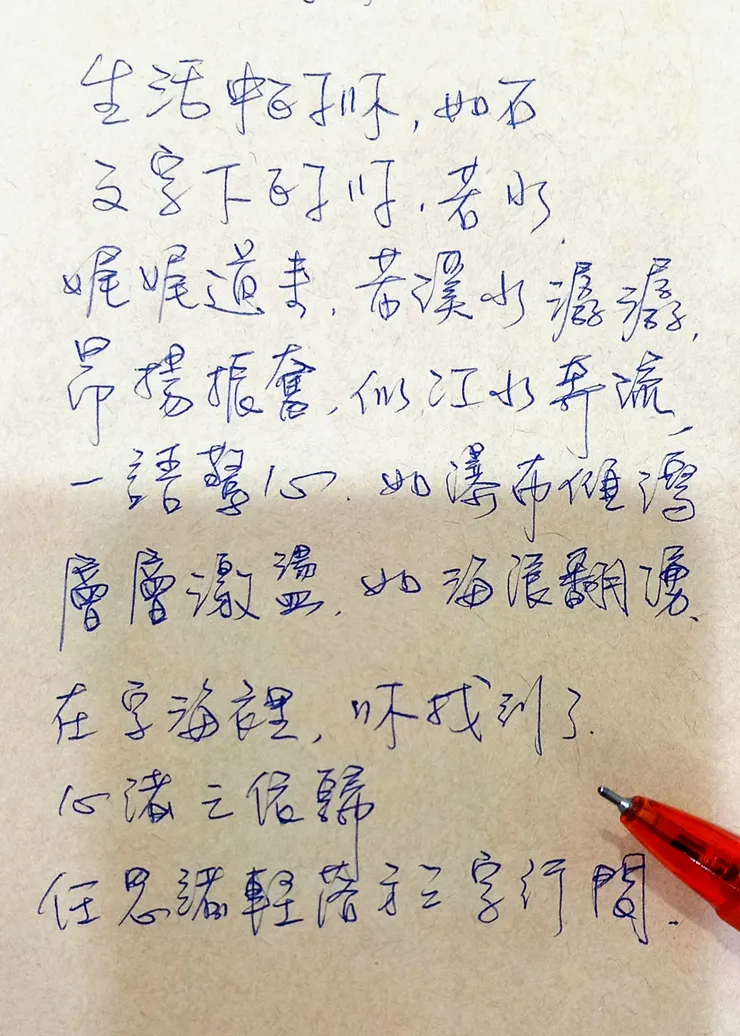 生活中的你，如石
文字下的你，若水，
娓娓道來，若溪水潺潺，
昂揚振奮，似江水奔流，
一語驚心，如瀑布傾瀉
層層激盪，如海浪翻湧，
在字海裡，你找到了
心緒之依歸
任思緒輕落於字行間．